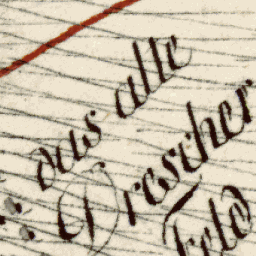 das alte
Drescher
Feld